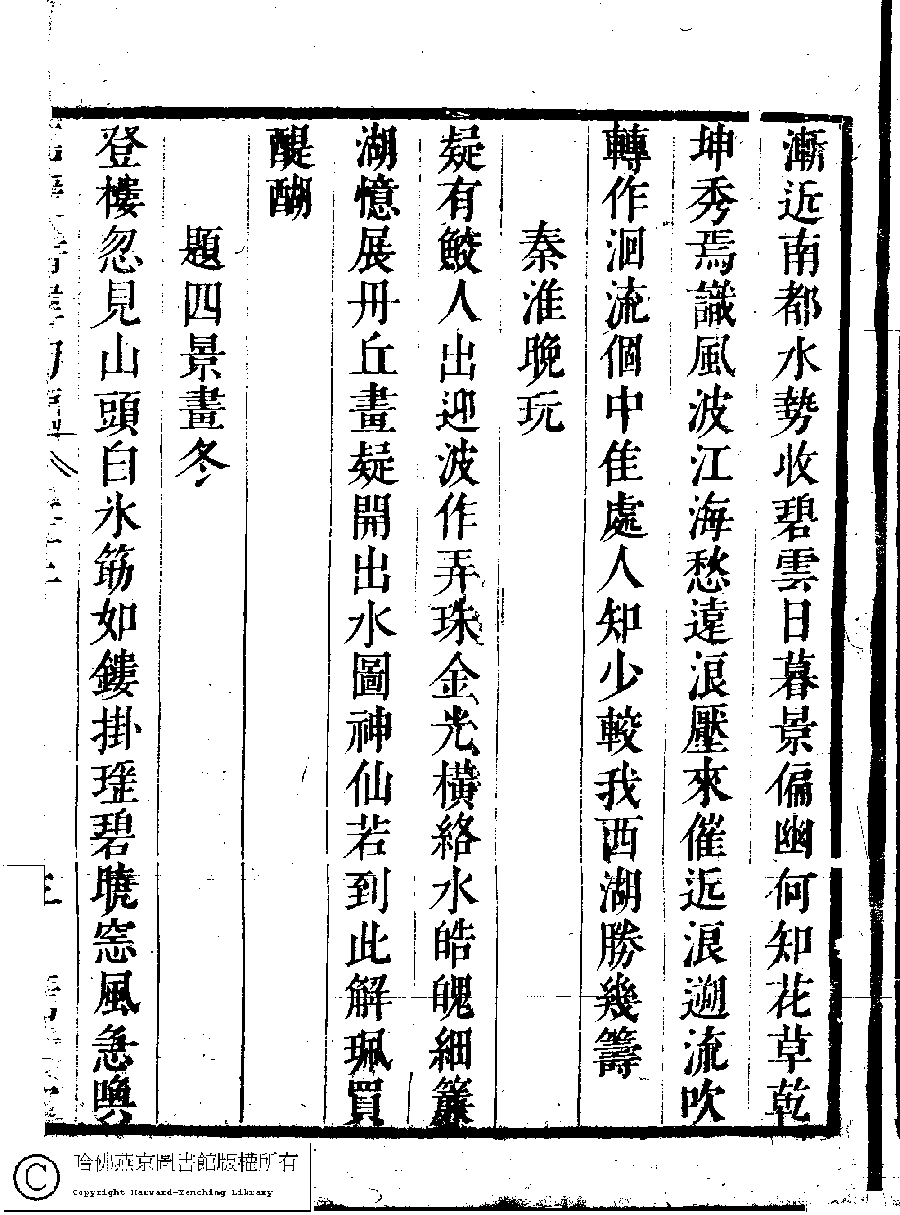 漸近南都水勢收碧雲日暮景偏幽何知花草乾
坤秀焉識風波江海愁遠浪壓來催近浪遡流吹
轉作洄流個中佳處人知少較我西湖勝幾籌
秦淮晚玩
疑有鮫人出迎波作弄珠金光橫絡水皓魄細簾
湖憶展丹丘畫疑開出水圖神仙若到此解珮買
醍醐
題四景畫冬
登樓忽見山頭白氷筯如鏤掛瑶碧曉窓風急喚
哈佛燕京圖書館版權所有
Copyright Harvard-Yenching Library